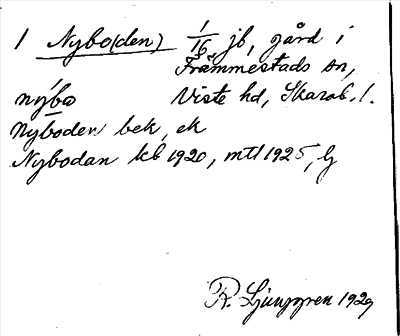 1 Nybo(den) 1/16 jb, gård i
Främmestads sn,
nýbo Viste hd, Skarab. l.
Nyboden bek, ek
Nybodan kb 1920, mtl 1925, lj
R. Ljunggren 1929